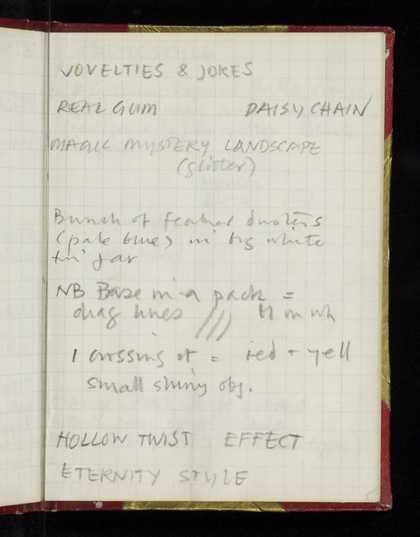 NOVELTIES & JOKES
REAL GUM DAISY CHAIN
MAGIC MYSTERY LANDSCAPE
(glitter)
Bunch of feathered dusters
(pale blue) in big white
tin jar
NB Base in a pack =
drag lines ///
1 crossing of = red + yell
small shiny obj.
HOLLOW TWIST EFFECT
ETERNITY STYLE